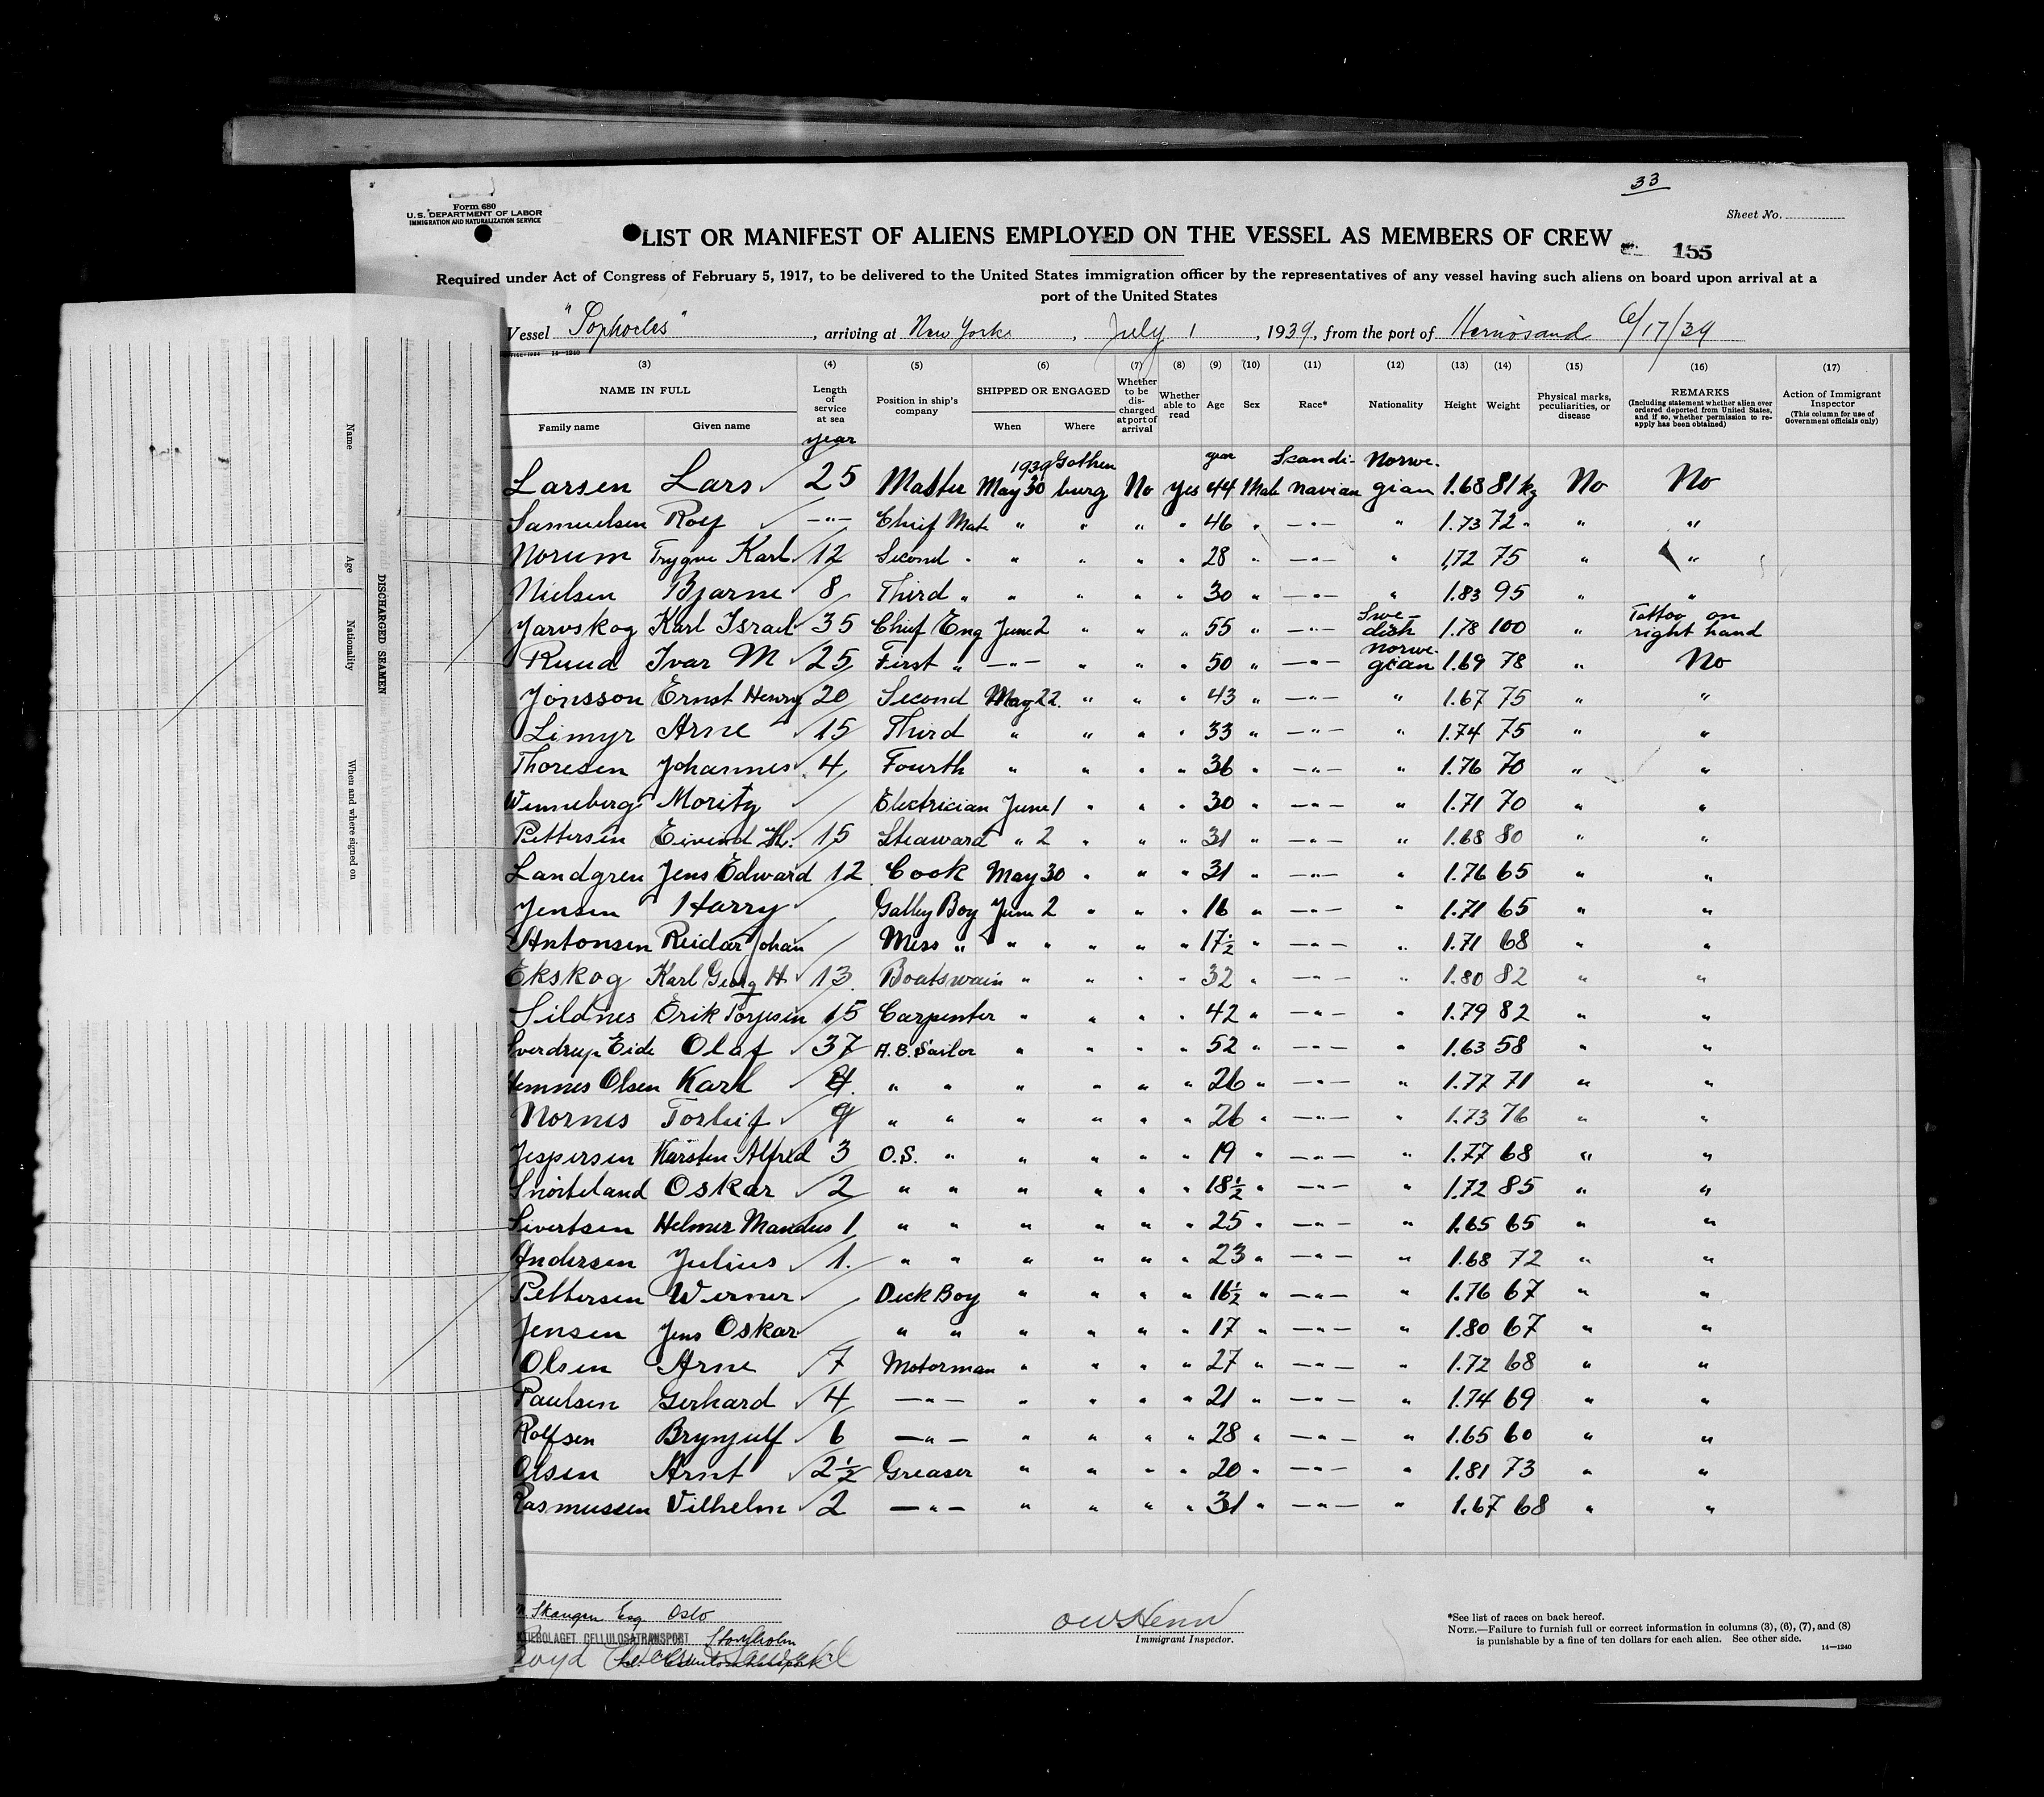 33
Form 680
U.S. DEPARTMENT OF LABOR
IMMIGRATION AND NATURALIZATION SERVICE
Sheet No.
LIST OR MANIFEST OF ALIENS EMPLOYED ON THE VESSEL AS MEMBERS OF CREW
155
Required under Act of Congress of February 5, 1917, to be delivered to the United States immigration officer by the representatives of any vessel having such aliens on board upon arrival at a
port of the United States
Vessel "Sophocles", arriving at New York, July 1, 1939, from the port of Hernösand 6/17/39
14-1240
(3) (4) (5) (6) (7) (8) (9) (10) (11) (12) (13) (14) (15) (16) (17)
NAME IN FULL
Family name
Given name
Length of service at sea
Position in ship's company
SHIPPED OR ENGAGED
When
Where
Whether to be discharged at port of arrival
Whether able to read
Age
Sex
Race*
Nationality
Height
Weight
Physical marks, peculiarities, or disease
REMARKS
(Including statement whether alien ever ordered deported from United States, and if so, whether permission to reapply has been obtained)
Action of Immigrant Inspector
(This column for use of Government officials only)
year 1939 Gothen year Scandi- Norwe-
Larsen Lars 25 Master May 30 burg No yes 44 Male navian gian 1.68 81 kg No No
Samuelsen Rolf —"— Chief Mate " " " " 46 " —"— " 1.73 72 " " "
Norum Trygve Karl 12 Second " " " " " 28 " —"— " 1,72 75 " "
Nielsen Bjarne 8 Third " " " " " 30 " —"— " 1.83 95 " "
Swe- Tattoo on
Jarvskog Karl Israel 35 Chief Eng June 2 " " " 55 " —"— dish 1.78 100 " right hand
Norwe-
Ruud Ivar M 25 First " —"— " " " 50 " —"— gian 1.69 78 " No
Jonsson Ernst Henry 20 Second May 22. " " " 43 " —"— " 1.67 75 " "
Limyr Arne 15 Third " " " " 33 " —"— " 1.74 75 " "
Thoresen Johannes 4 Fourth " " " " 36 " —"— " 1.76 70 " "
Wenneberg Moritz Electrician June 1 " " " 30 " —"— " 1.71 70 " "
Pettersen Eivind Th. 15 Steaward " 2 " " " 31 " —"— " 1.68 80 " "
Landgren Jens Edward 12 Cook May 30 " " " 31 " —"— " 1.76 65 " "
Jensen Harry Galley Boy June 2 " " " 16 " —"— " 1.71 65 " "
Antonsen Reidar Johan Mess " " " " " " 17½ " —"— " 1.71 68 " "
Ekskog Karl Georg H 13. Boatswain " " " " 32 " —"— " 1.80 82 " "
Sildnes Erik Torjesen 15 Carpenter " " " " 42 " —"— " 1.79 82 " "
Sverdrup Eide Olaf 37 A.B. Sailor " " " " 52 " —"— " 1.63 58 " "
Hemnes Olsen Karl " " " " " " 26 " —"— " 1.77 71 " "
Nornes Torleif 9 " " " " " " 26 " —"— " 1.73 76 " "
Jespersen Karsten Alfred 3 O.S. " " " " " 19 " —"— " 1.77 68 " "
Snörteland Oskar 2 " " " " " " 18½ " —"— " 1.72 85 " "
Sivertsen Helmer Mandus 1 " " " " " " 25 " —"— " 1.65 65 " "
Andersen Julius 1. " " " " " " 23 " —"— " 1.68 72 " "
Pettersen Werner Deck Boy " " " " 16½ " —"— " 1.76 67 " "
Jensen Jens Oskar " " " " " " 17 " —"— " 1.80 67 " "
Olsen Arne 7 Motorman " " " " 27 " —"— " 1.72 68 " "
Paulsen Gerhard 4 —"— " " " " 21 " —"— " 1.74 69 " "
Rolfsen Brynjulf 6 —"— " " " " 28 " —"— " 1.65 60 " "
Olsen Arnt 2½ Greaser " " " " 20 " —"— " 1.81 73 " "
Rasmussen Vilhelm 2 —"— " " " " 31 " —"— " 1.67 68 " "
Skaugen Esq Oslo
CELLULOSATRANSPORT Stockholm
Immigrant Inspector.
*See list of races on back hereof.
NOTE.—Failure to furnish full or correct information in columns (3), (6), (7), and (8)
is punishable by a fine of ten dollars for each alien. See other side.
14-1240
Name
Age
Nationality
When and where signed on
DISCHARGED SEAMEN